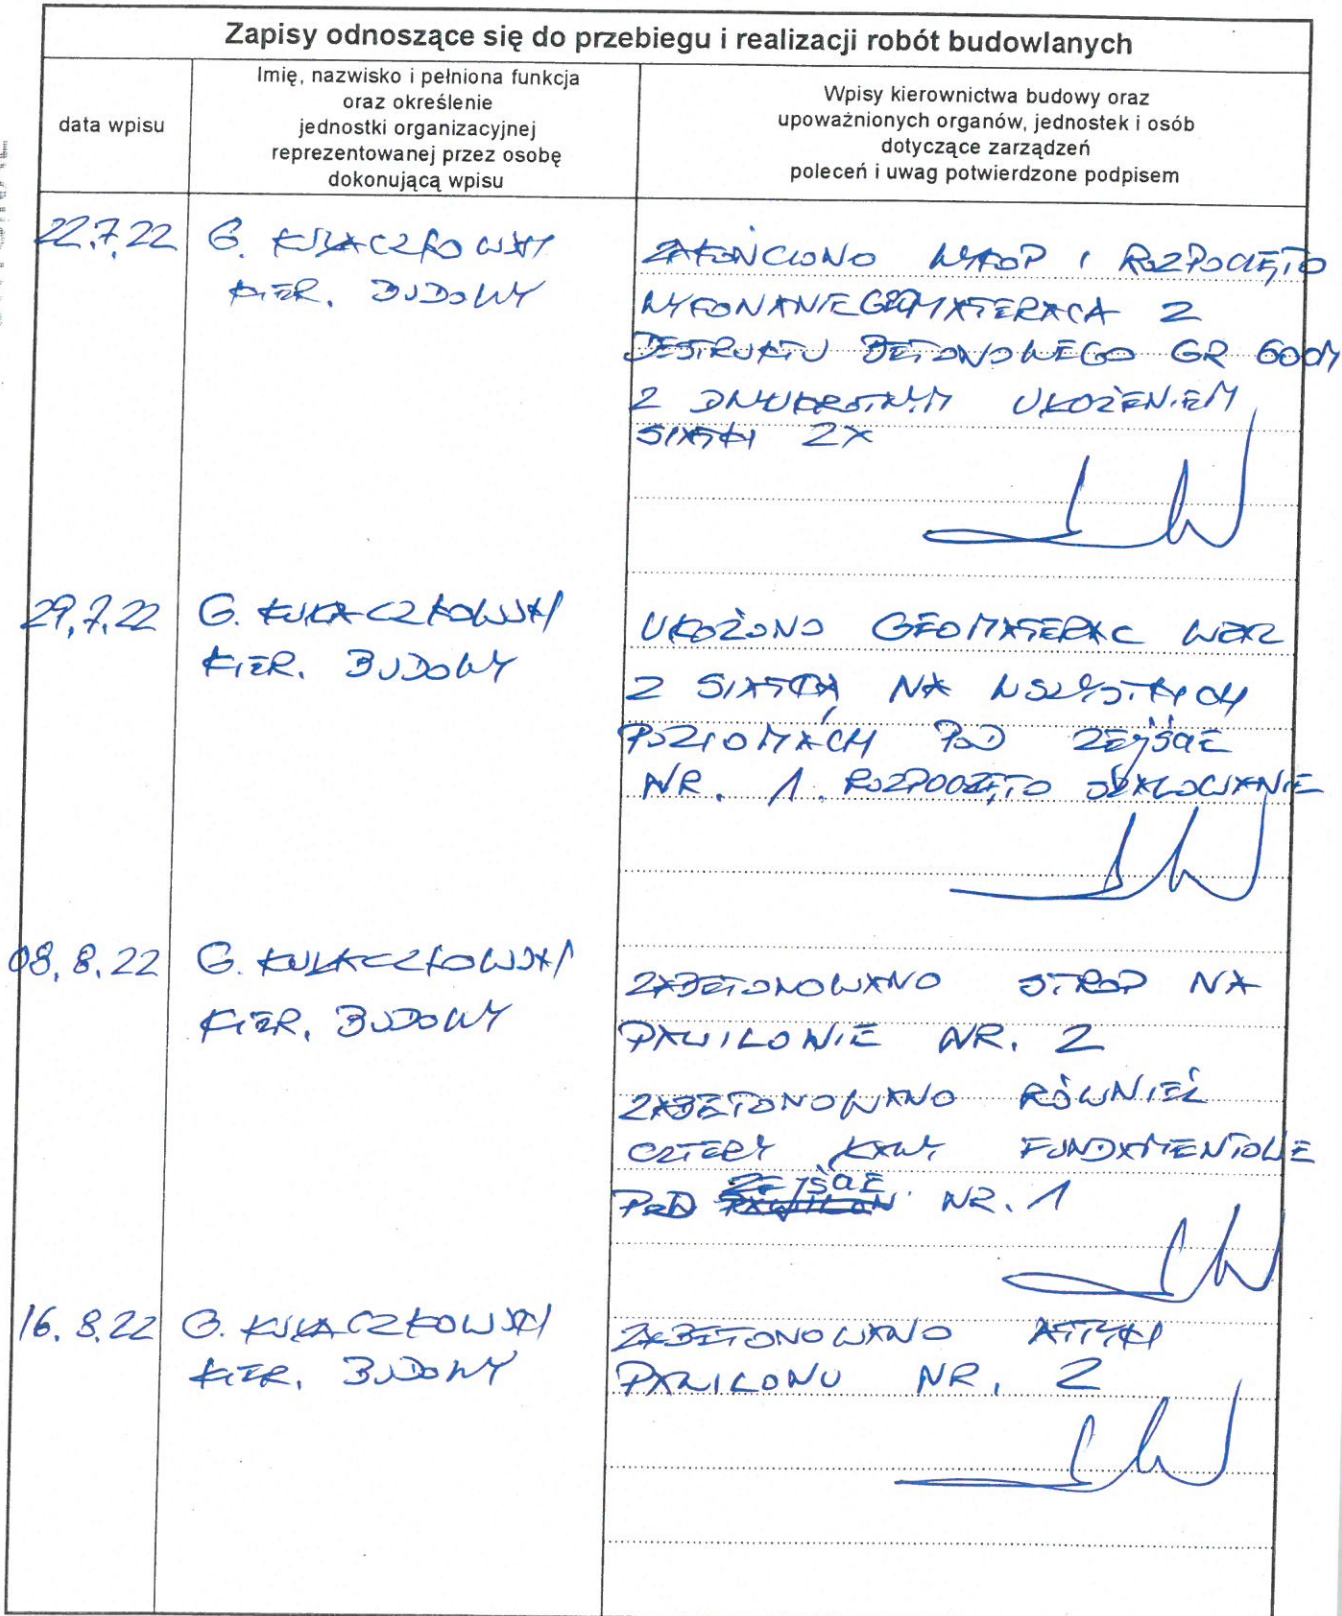 Zapisy odnoszące się do przebiegu i realizacji robót budowlanych
data wpisu
Imię, nazwisko i pełniona funkcja
oraz określenie
jednostki organizacyjnej
reprezentowanej przez osobę
dokonującą wpisu
Wpisy kierownictwa budowy oraz
upoważnionych organów, jednostek i osób
dotyczące zarządzeń
poleceń i uwag potwierdzone podpisem
22.7.22
G. KUŁACZKOWSKI
KIER. BUDOWY
ZAKOŃCZONO WYKOP I ROZPOCZĘTO
WYKONANIE GEOMATERACA Z
DESTRUKTU BETONOWEGO GR 60CM
Z DWUKROTNYM UŁOŻENIEM
SIATKI 2X
29.7.22
G. KUŁACZKOWSKI
KIER. BUDOWY
UŁOŻONO GEOMATERAC WRAZ
Z SIATKĄ NA WSZYSTKICH
POZIOMACH POD ZEJŚCIE
NR. 1. ROZPOCZĘTO SZALOWANIE
08.8.22
G. KUŁACZKOWSKI
KIER. BUDOWY
ZABETONOWANO STROP NA
PAWILONIE NR. 2
ZABETONOWANO RÓWNIEŻ
CZTERY ŁAWY FUNDAMENTOWE
POD ZEJŚCIE NR. 1
16.8.22
G. KUŁACZKOWSKI
KIER. BUDOWY
ZABETONOWANO ATTYKI
PAWILONU NR. 2